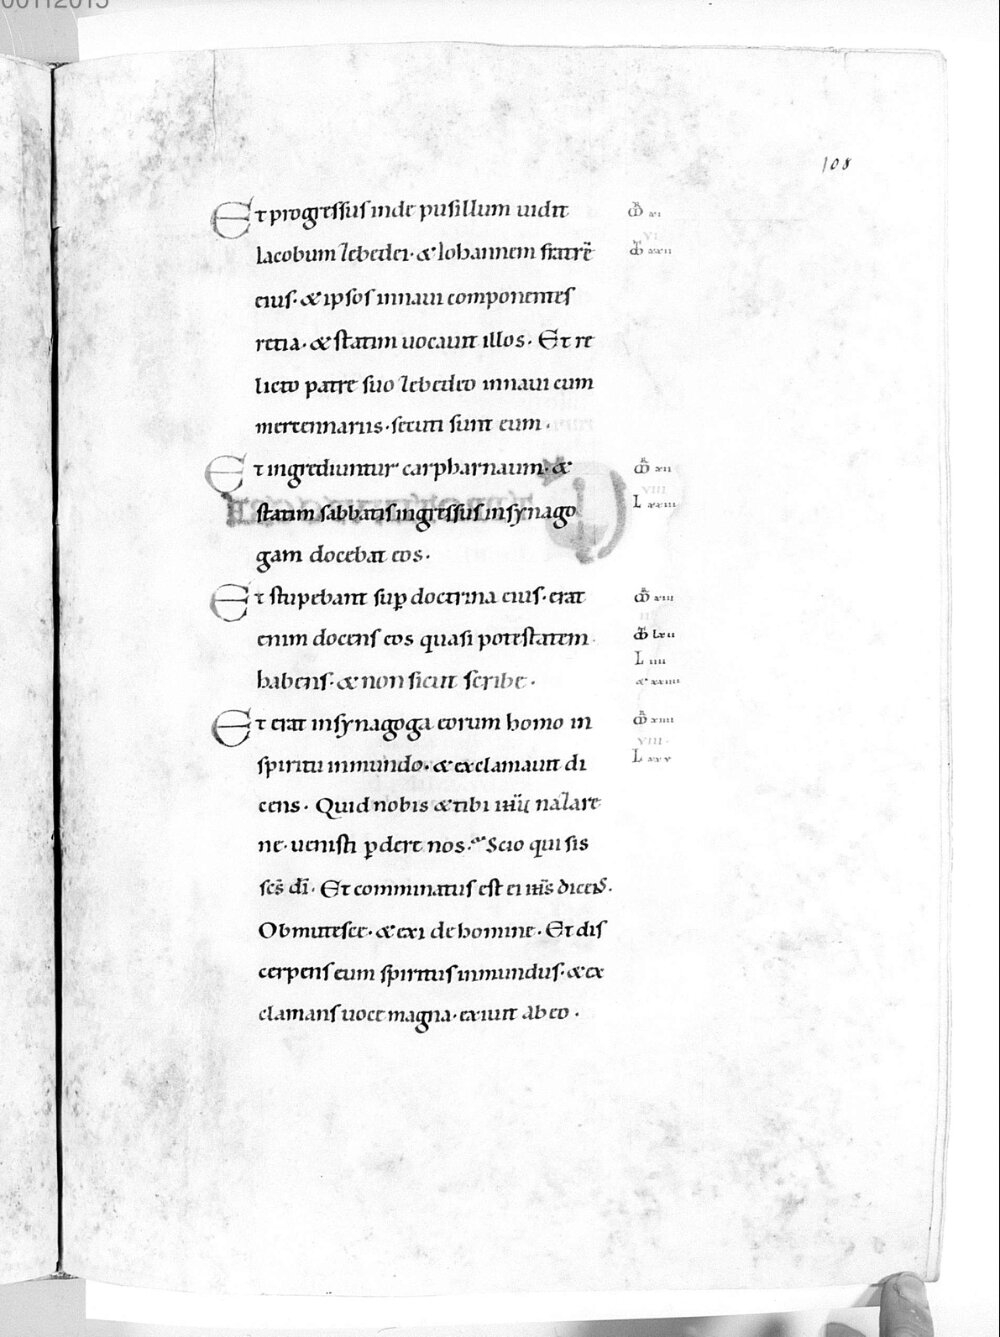 108
Et progressus inde pusillum uidit
Iacobum Zebedei· & Iohannem fratrē
eius· & ipsos in naui componentes
retia· & statim uocauit illos· Et re
licto patre suo Zebedeo in naui cum
mercennariis· secuti sunt eum·
Et ingrediuntur capharnaum· &
statim sabbatis ingressus in synago
gam docebat eos·
Et stupebant sup̱ doctrina eius· erat
enim docens eos quasi potestatem
habens· & non sicut scribe·
Et erat in synagoga eorum homo in
spiritu inmundo· & exclamauit di
cens· Quid nobis & tibi iħu nazare
ne· uenisti p̱dere nos· Scio qui sis
scs̄ dī· Et comminatus est ei iħs dicens·
Obmutesce· & exi de homine· Et dis
cerpens eum spiritus inmundus· & ex
clamans uoce magna· exiuit ab eo·